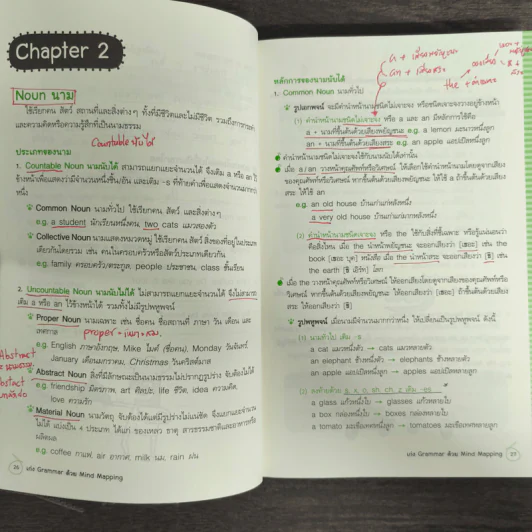 Chapter 2
Noun นาม
ใช้เรียกคน สัตว์ สถานที่และสิ่งต่างๆ ทั้งที่มีชีวิตและไม่มีชีวิต รวมถึงการกระทำ
และความคิดหรือความรู้สึกที่เป็นนามธรรม
Countable นับได้
ประเภทของนาม
1. Countable Noun นามนับได้ สามารถแยกแยะจำนวนได้ จึงเติม a หรือ an ไว้
ข้างหน้าเพื่อแสดงว่ามีจำนวนหนึ่งชิ้น/อัน และเติม -s ที่ท้ายคำเพื่อแสดงจำนวนมากกว่า
หนึ่ง
Common Noun นามทั่วไป ใช้เรียกคน สัตว์ และสิ่งต่างๆ
e.g. a student นักเรียนหนึ่งคน, two cats แมวสองตัว
Collective Noun นามแสดงหมวดหมู่ ใช้เรียกคน สัตว์ สิ่งของที่อยู่ในประเภท
เดียวกันโดยรวม เช่น คนในครอบครัวหรือสัตว์ประเภทเดียวกัน
e.g. family ครอบครัว/ตระกูล, people ประชาชน, class ชั้นเรียน
2. Uncountable Noun นามนับไม่ได้ ไม่สามารถแยกแยะจำนวนได้ จึงไม่สามารถ
เติม a หรือ an ไว้ข้างหน้าได้ รวมทั้งไม่มีรูปพหูพจน์
Proper Noun นามเฉพาะ เช่น ชื่อคน ชื่อสถานที่ ภาษา วัน เดือน และ
เทศกาล
e.g. English ภาษาอังกฤษ, Mike ไมค์ (ชื่อคน), Monday วันจันทร์,
January เดือนมกราคม, Christmas วันคริสต์มาส
Abstract Noun สิ่งที่มีลักษณะเป็นนามธรรมไม่ปรากฏรูปร่าง จับต้องไม่ได้
e.g. friendship มิตรภาพ, art ศิลปะ, life ชีวิต, idea ความคิด,
love ความรัก
Abstract
Material Noun นามวัตถุ จับต้องได้แต่มีรูปร่างไม่แน่ชัด จึงแยกแยะจำนวน
ไม่ได้ แบ่งเป็น ๔ ประเภท ได้แก่ ของเหลว ธาตุ สารธรรมชาติและอาหารหรือ
ผลิตผล
e.g. coffee กาแฟ, air อากาศ, milk นม, rain ฝน
26 เก่ง Grammar ด้วย Mind Mapping
หลักการของนามนับได้
1. Common Noun นามทั่วไป
รูปเอกพจน์ จะมีคำนำหน้านามชนิดไม่เจาะจง หรือชนิดเจาะจงวางอยู่ข้างหน้า
(1) คำนำหน้านามชนิดไม่เจาะจง หรือ a และ an มีหลักการใช้คือ
a + นามที่ขึ้นต้นด้วยเสียงพยัญชนะ e.g. a lemon มะนาวหนึ่งลูก
an + นามที่ขึ้นต้นด้วยเสียงสระ e.g. an apple แอปเปิลหนึ่งลูก
คำนำหน้านามชนิดไม่เจาะจงใช้กับนามนับได้เท่านั้น
เมื่อ a/an วางหน้าคุณศัพท์หรือวิเศษณ์ ให้เลือกใช้คำนำหน้านามโดยดูจากเสียง
ของคุณศัพท์หรือวิเศษณ์ หากขึ้นต้นด้วยเสียงพยัญชนะ ให้ใช้ a ถ้าขึ้นต้นด้วยเสียง
สระ ให้ใช้ an
e.g. an old house บ้านเก่าแก่หลังหนึ่ง
a very old house บ้านเก่าแก่มากหลังหนึ่ง
(2) คำนำหน้านามชนิดเจาะจง หรือ the ใช้กับสิ่งที่ชี้เฉพาะ หรือรู้แน่นอนว่า
คือสิ่งไหน เมื่อ the นำหน้าพยัญชนะ จะออกเสียงว่า [เธอะ] เช่น the
book [เธอะ บุค] หนังสือ เมื่อ the นำหน้าสระ จะออกเสียงว่า [ธิ] เช่น
the earth [ธิ เอิร์ท] โลก
เมื่อ the วางหน้าคุณศัพท์หรือวิเศษณ์ ให้ออกเสียงโดยดูจากเสียงของคุณศัพท์หรือ
วิเศษณ์ หากขึ้นต้นด้วยเสียงพยัญชนะ ให้ออกเสียงว่า [เธอะ] ถ้าขึ้นต้นด้วยเสียง
สระ ให้ออกเสียงว่า [ธิ]
รูปพหูพจน์ เมื่อนามมีจำนวนมากกว่าหนึ่ง ให้เปลี่ยนเป็นรูปพหูพจน์ ดังนี้
(1) นามทั่วไป เติม -s
a cat แมวหนึ่งตัว → cats แมวหลายตัว
an elephant ช้างหนึ่งตัว → elephants ช้างหลายตัว
an apple แอปเปิลหนึ่งลูก → apples แอปเปิลหลายลูก
(2) ลงท้ายด้วย s, x, o, sh, ch, z เติม -es
a glass แก้วหนึ่งใบ → glasses แก้วหลายใบ
a box กล่องหนึ่งใบ → boxes กล่องหลายใบ
a tomato มะเขือเทศหนึ่งลูก → tomatoes มะเขือเทศหลายลูก
เก่ง Grammar ด้วย Mind Mapping 27